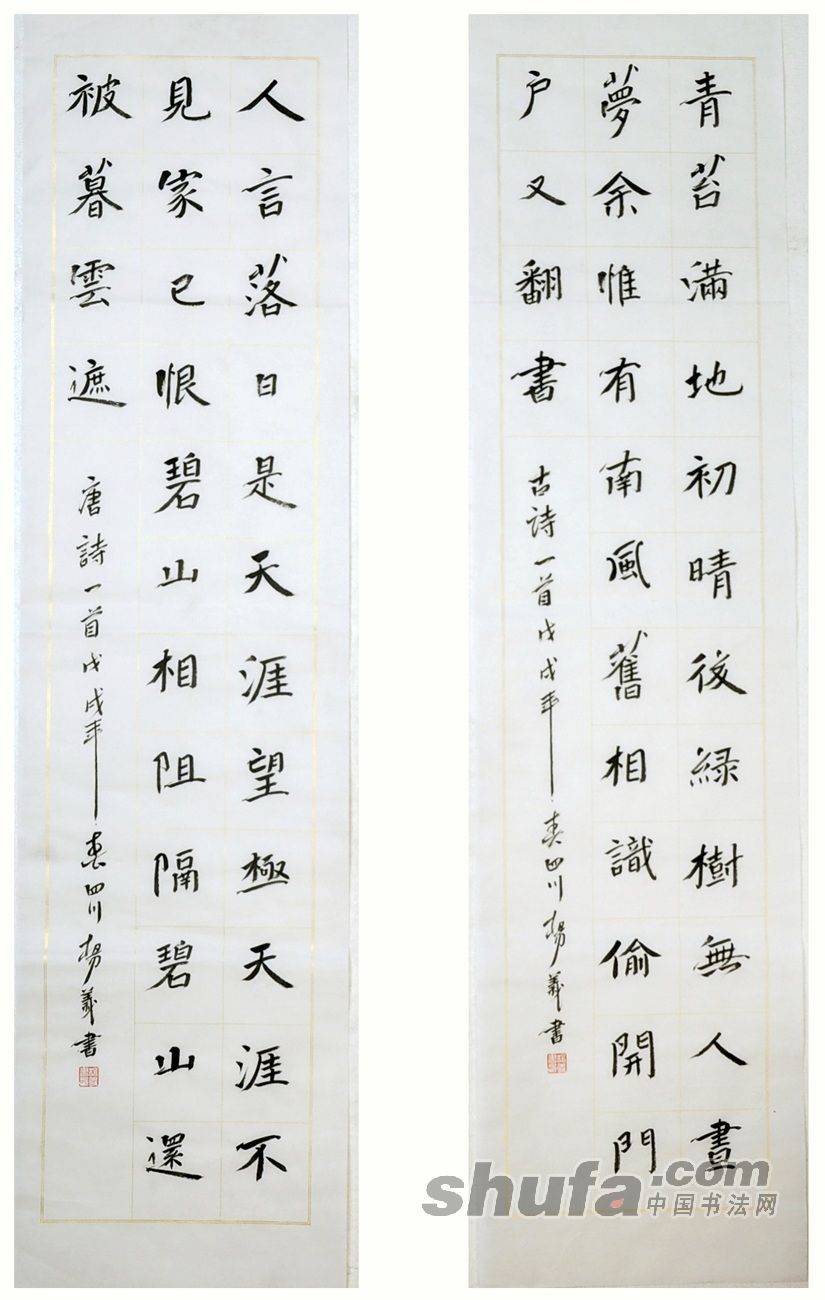 青苔滿地初晴後綠樹無人晝
夢余惟有南風舊相識偷開門
户又翻書
古詩一首戊戌年春四川楊義書
人言落日是天涯望極天涯不
見家已恨碧山相阻隔碧山還
被暮雲遮
唐詩一首戊戌年春四川楊義書
shufa.com
中国书法网